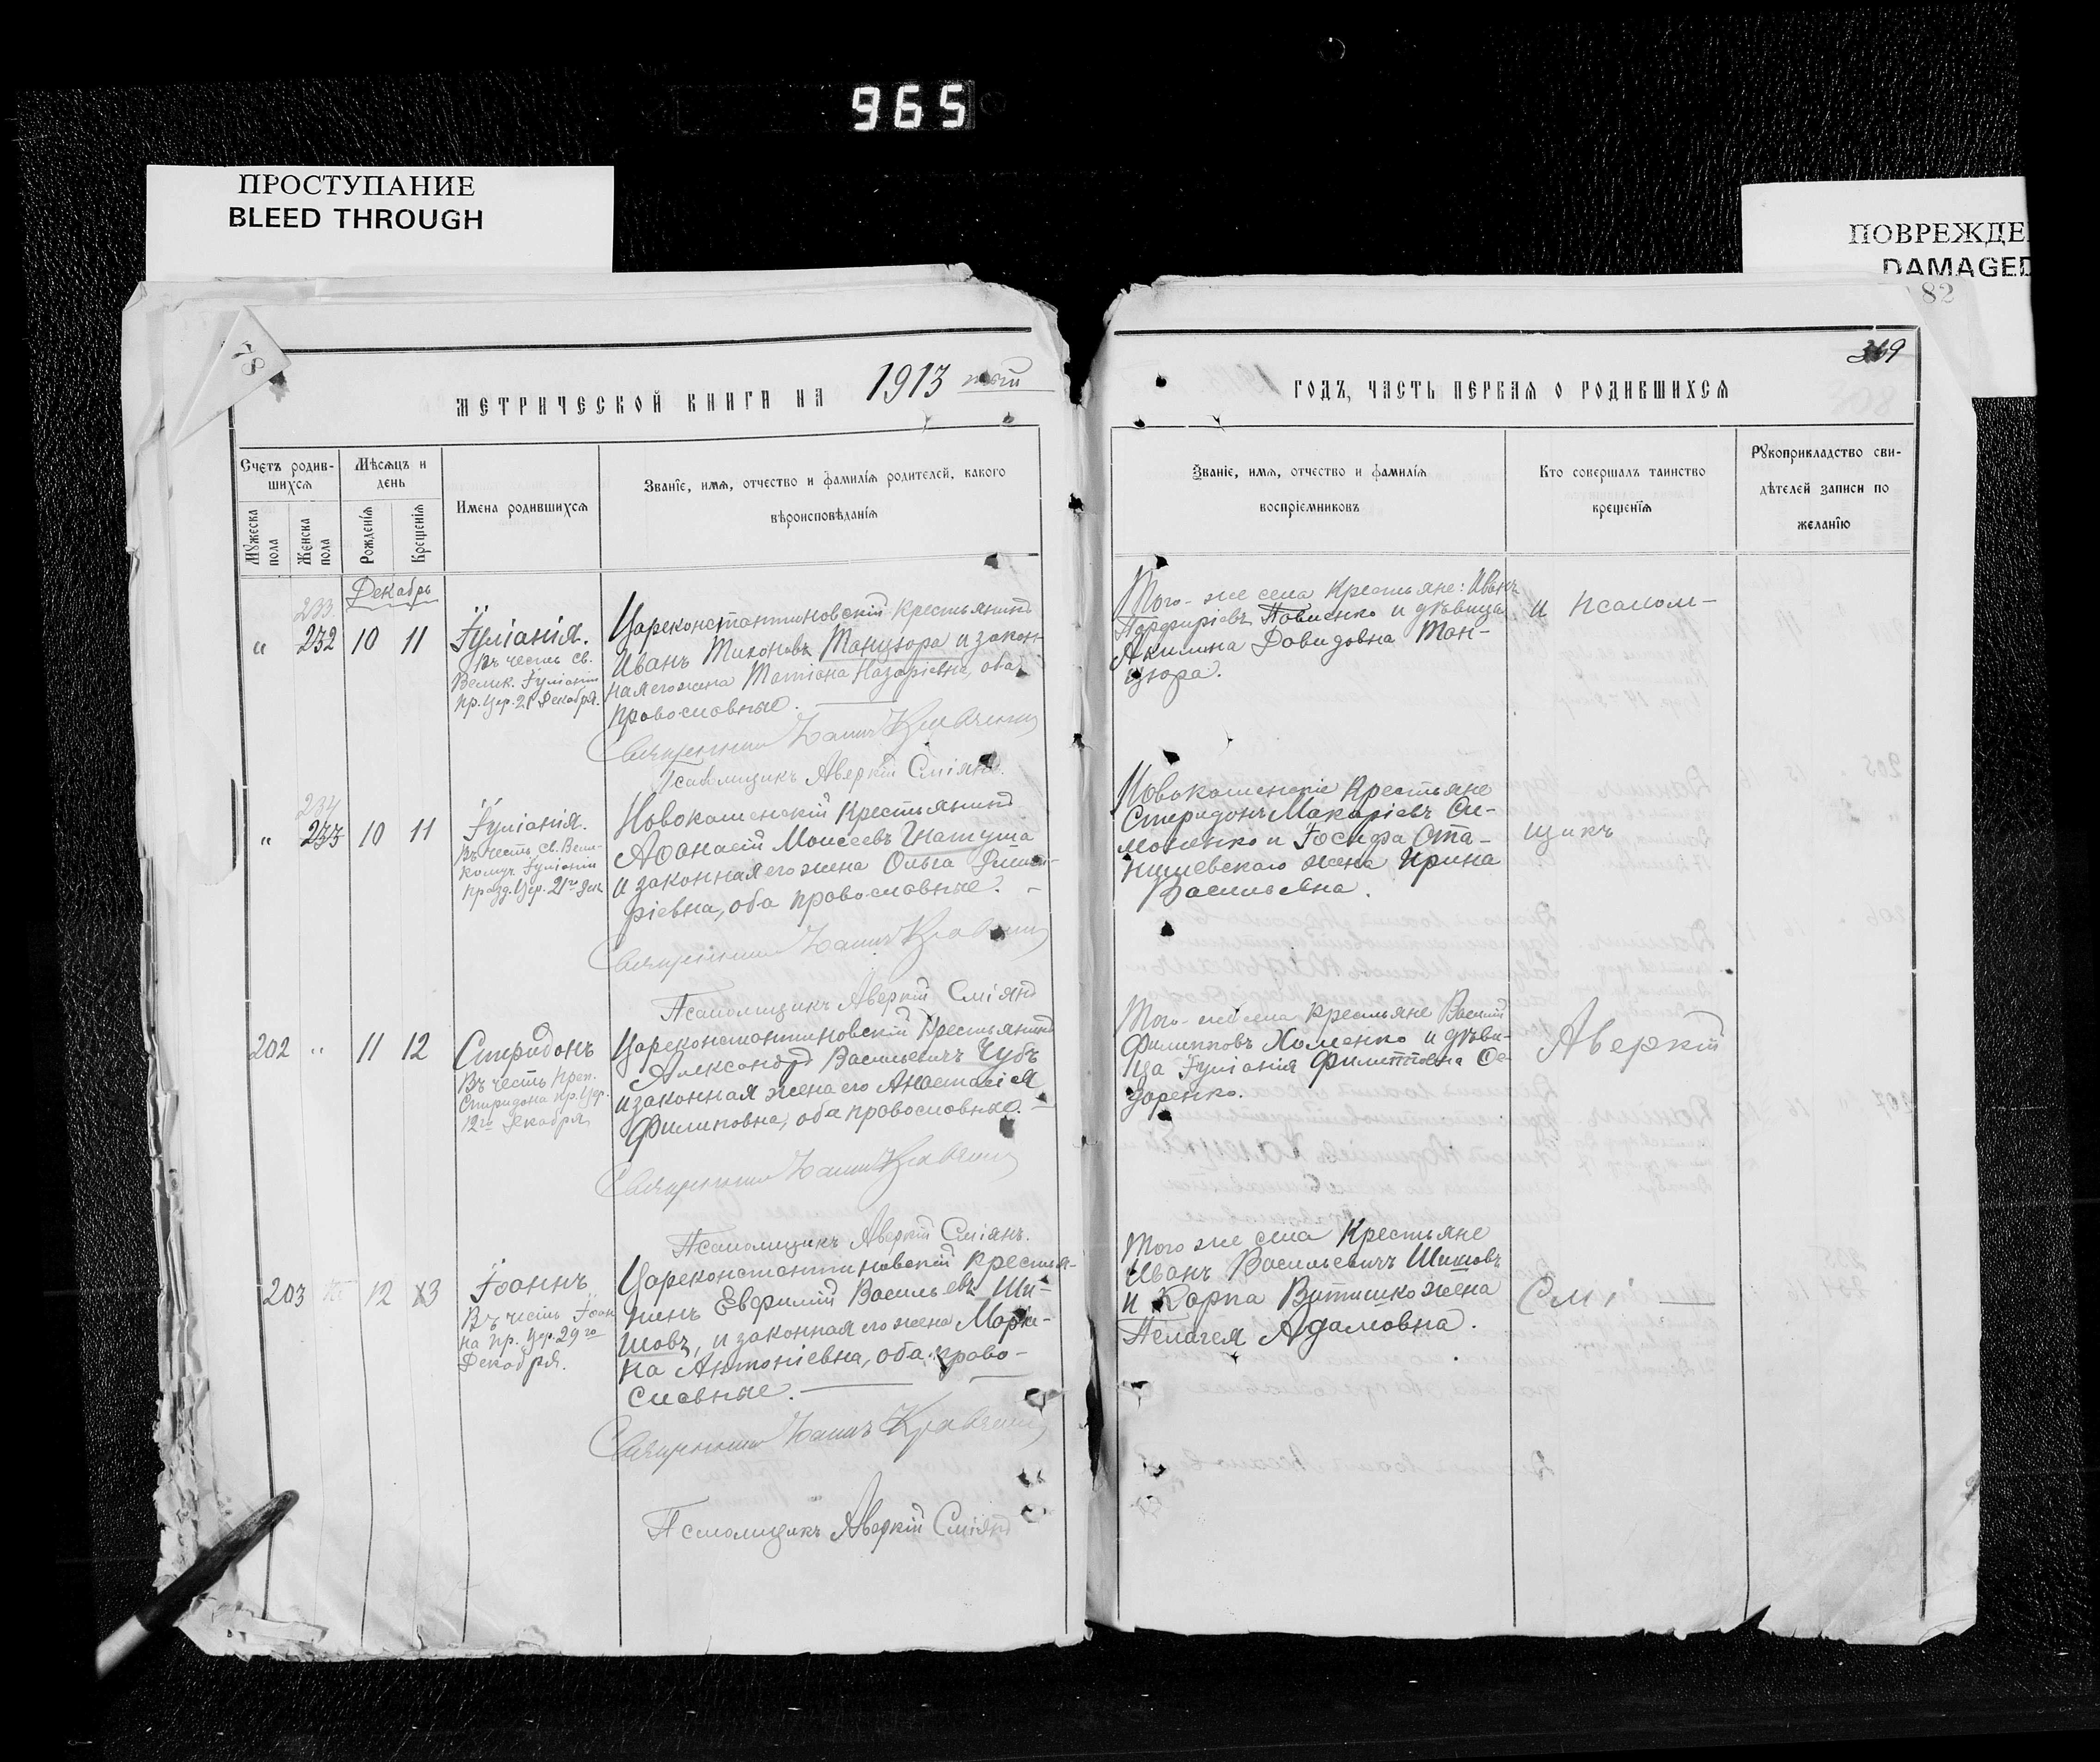 965
ПРОСТУПАНИЕ
BLEED THROUGH
ПОВРЕЖДЕ
DAMAGED
82
78
369
МЕТРИЧЕСКОЙ КНИГИ НА 1913 ГОДЪ, ЧАСТЬ ПЕРВАЯ О РОДИВШИХСЯ
Счетъ родив-
шихся
Мужеска пола
Женска пола
Мѣсяцъ и
день
Рожденія
Крещенія
Имена родившихся
Званіе, имя, отчество и фамилія родителей, какого
вѣроисповѣданія
Званіе, имя, отчество и фамилія
воспріемниковъ
Кто совершалъ таинство
крещенія
Рукоприкладство сви-
дѣтелей записи по
желанію
Декабрь
233
„ 232 10 11
Іуліанія.
Въ честь св.
Велик. Іуліаніи
пр. Цер. 21 Декабря.
Цареконстантиновскій крестьянинъ
Иванъ Тихоновъ Манцюра и закон-
ная его жена Татіана Назаріевна, оба
православные.
Священникъ
Псаломщикъ Аверкій Сміянъ.
Того-же села крестьяне: Иванъ
Порфиріевъ Павленко и дѣвица
Акилина Давидовна Ман-
цюра.
и псалом-
234
„ 233 10 11
Іуліанія.
Въ честь св. Вели-
комуч. Іуліаніи
празд. Цер. 21го Дек
Новокаменскій крестьянинъ
Аѳанасій Моисеевъ Гнатуша
и законная его жена Ольга
ріевна, оба православные.
Священникъ
Псаломщикъ Аверкій Сміянъ
Новокаменскіе крестьяне
Спиридонъ Макаріевъ Си-
моненко и Іосифа Ста-
нишевскаго жена Ирина
Васильевна.
щикъ
202 „ 11 12
Спиридонъ
Въ честь преп.
Спиридона пр. Цер.
12го Декабря
Цареконстантиновскій крестьянинъ
Александръ Васильевичъ Чубъ
и законная жена его Анастасія
Филиповна, оба православные.
Священникъ
Псаломщикъ Аверкій Сміянъ.
Того-же села крестьяне Василій
Филипповъ Хоменко и дѣви-
ца Іуліанія Филипповна
Аверкій
203 12 13
Іоаннъ
Въ честь Іоан
на пр. Цер. 29го
Декабря.
Цареконстантиновскій крестья-
нинъ Евфимій Васильевъ Ши-
шовъ, и законная его жена Мари-
на Антоніевна, оба право-
славные.
Священникъ
Псаломщикъ Аверкій Сміянъ
Того же села крестьяне
Иванъ Васильевичъ Шишовъ
и Карпа Витишко жена
Пелагея Адамовна.
Смі